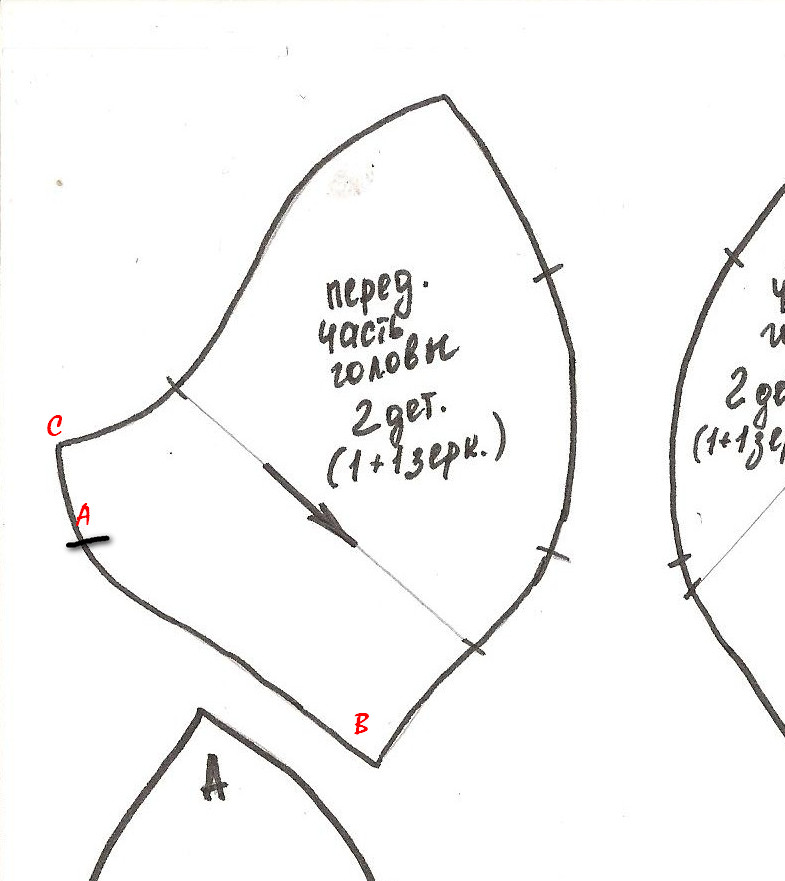 перед.
часть
головы
2 дет.
(1+1 зерк.)
C
A
B
A
2 де
(1+1 зер